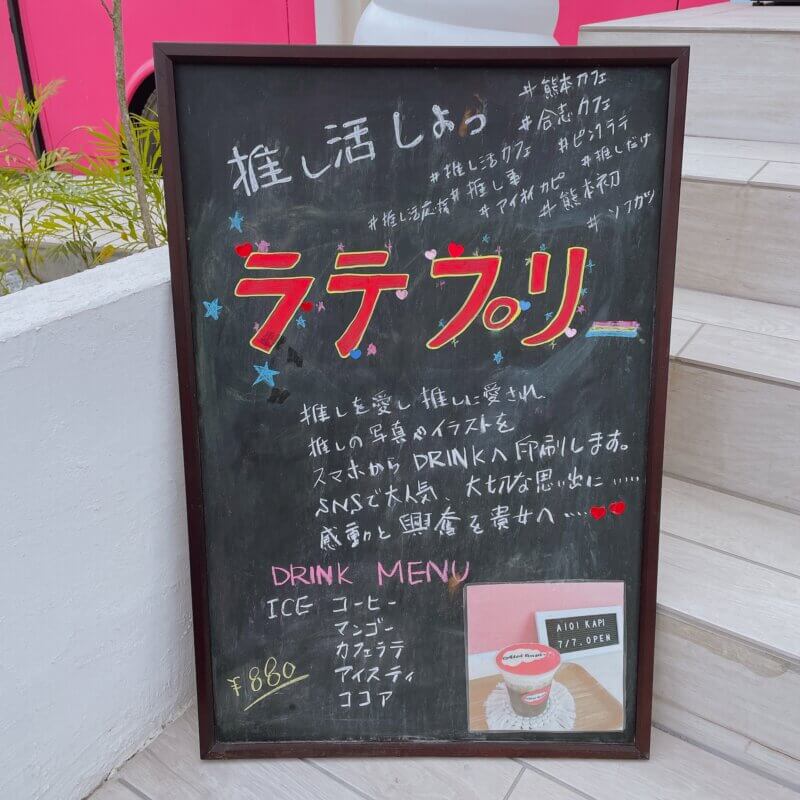 推し活しよっ
#熊本カフェ
#合志カフェ
#推し活カフェ #ピンクラテ
#推し事 #推しだけ
#推し活応援 #アイオイカピ #熊本初
#ソフガツ
ラテプリ
推しを愛し推しに愛され
推しの写真やイラストを
スマホからDRINKへ印刷します。
SNSで大人気、大切な思い出に……
感動と興奮を貴女へ……
DRINK MENU
ICE コーヒー
マンゴー
カフェラテ
アイスティ
ココア
¥880
AIOI KAPI
7/7.OPEN